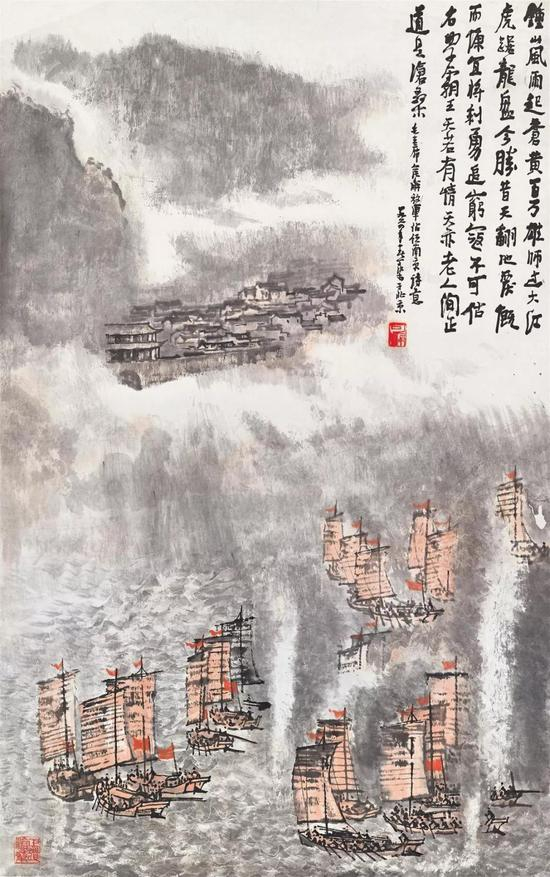 鍾山風雨起蒼黄百万雄師过大江
虎踞龍盘今勝昔天翻地覆慨
而慷宜将剩勇追窮寇不可沽
名學霸王天若有情天亦老人间正
道是滄桑 毛主席 解放軍佔领南京诗意
于北京